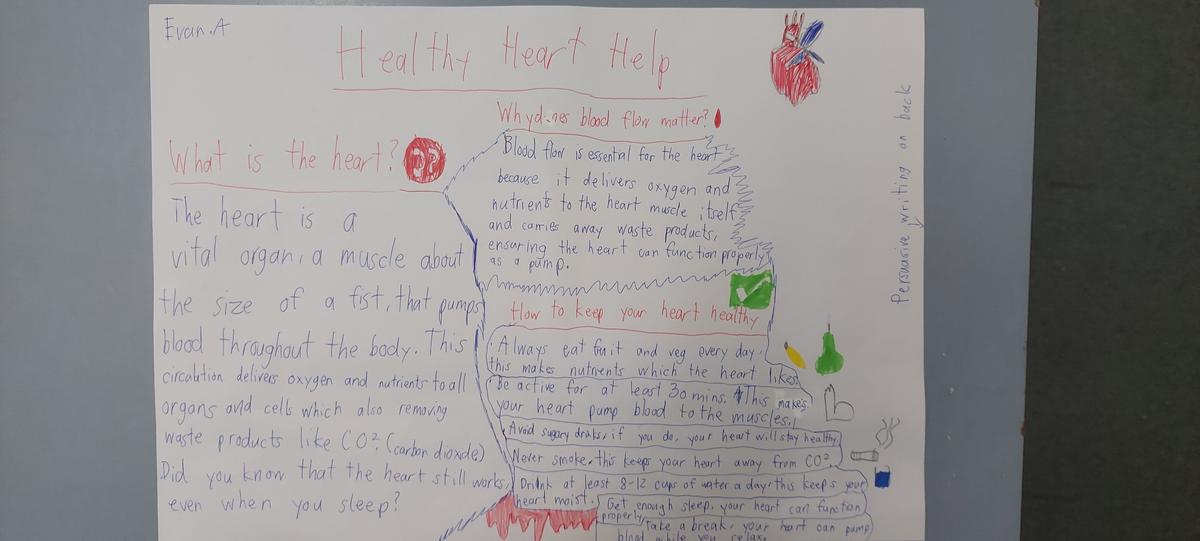 Evan.A
Healthy Heart Help
What is the heart?
The heart is a
vital organ, a muscle about
the size of a fist, that pumps
blood throughout the body. This
circulation delivers oxygen and nutrients to all
organs and cells which also removing
waste products like CO². (carbon dioxide)
Did you know that the heart still works,
even when you sleep?
Why does blood flow matter?
Blood flow is essential for the heart
because it delivers oxygen and
nutrients to the heart muscle itself
and carries away waste products,
ensuring the heart can function properly
as a pump.
How to keep your heart healthy
Always eat fruit and veg every day.
this makes nutrients which the heart likes.
Be active for at least 30 mins. This makes
your heart pump blood to the muscles.
Avoid sugary drinks, if you do, your heart will stay healthy
Never smoke, this keeps your heart away from CO²
Drink at least 8-12 cups of water a day, this keeps your
heart moist.
Get enough sleep, your heart can function
properly
Take a break, your heart can pump
blood while you relax.
Persuasive writing on back